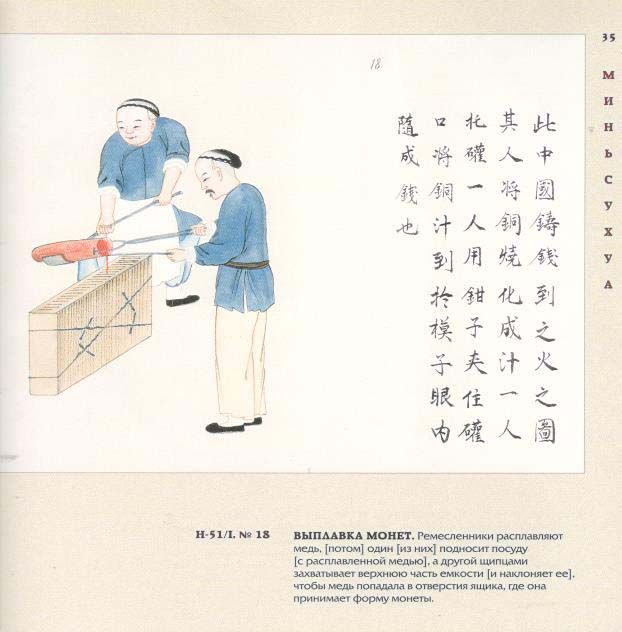 35
МИНЬСУХУА
18
此中國鑄錢到之火之圖
其人將銅燒化成汁一人
托礶一人用鉗子夾住礶
口將銅汁到扵模子眼内
隨成錢也
Н-51/I. № 18
ВЫПЛАВКА МОНЕТ. Ремесленники расплавляют
медь, [потом] один [из них] подносит посуду
[с расплавленной медью], а другой щипцами
захватывает верхнюю часть емкости [и наклоняет ее],
чтобы медь попадала в отверстия ящика, где она
принимает форму монеты.